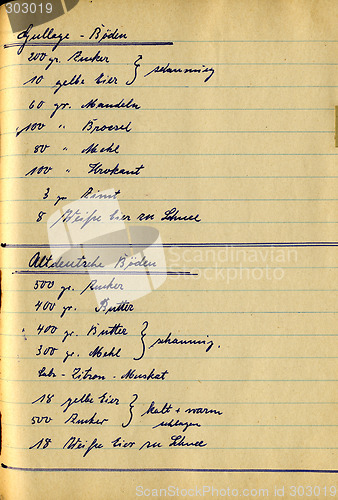 303019
Gullage - Böden
200 gr. Zucker
10 gelbe Eier } schaumig
60 gr. Mandeln
100 " Broesel
80 " Mehl
100 " Krokant
3 gr Zimt
8 Weiße Eier zu Schnee
Altdeutsche Böden
500 gr. Zucker
400 gr. Butter
400 gr. Butter
300 gr. Mehl } schaumig.
Salz - Zitron - Muskat
18 gelbe Eier
500 Zucker } kalt + warm schlagen
18 Weiße Eier zu Schnee
Scandinavian
StockPhoto
© Scandinavian StockPhoto / 303019